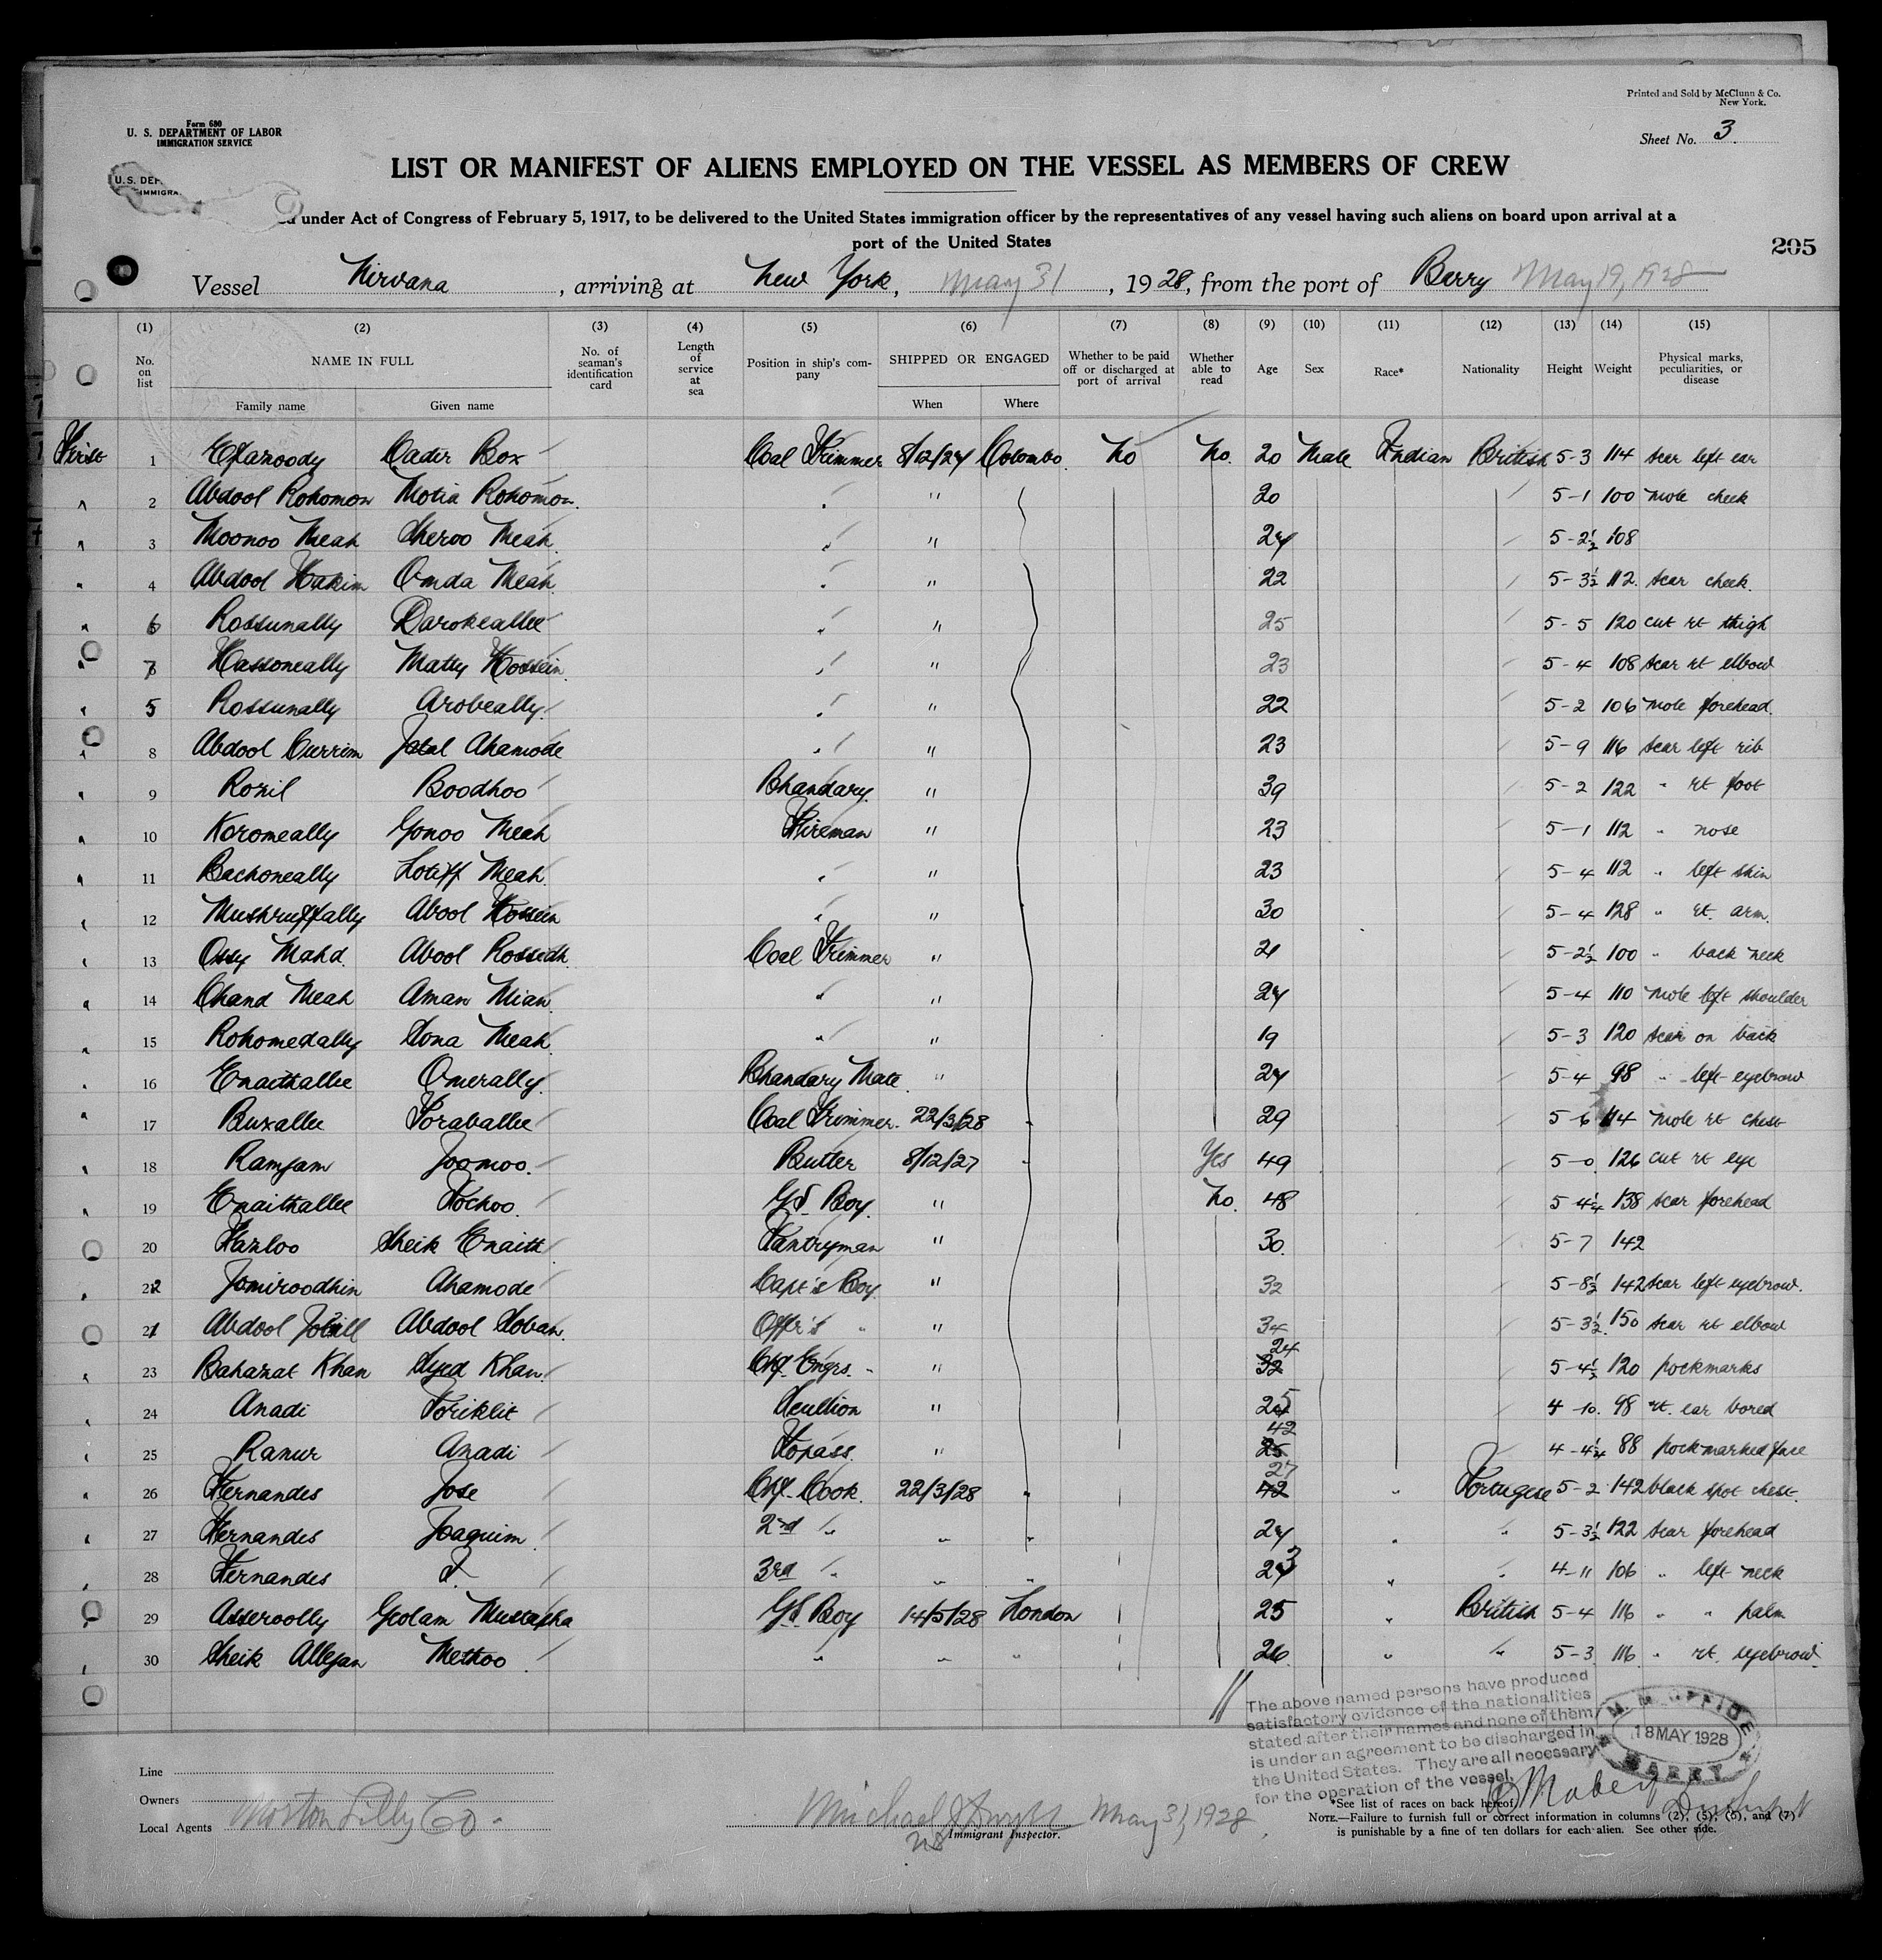 Printed and Sold by McClunn & Co.
New York.
Form 680
U. S. DEPARTMENT OF LABOR
IMMIGRATION SERVICE
Sheet No. 3
U.S. DEP
IMMIGRA
LIST OR MANIFEST OF ALIENS EMPLOYED ON THE VESSEL AS MEMBERS OF CREW
under Act of Congress of February 5, 1917, to be delivered to the United States immigration officer by the representatives of any vessel having such aliens on board upon arrival at a
port of the United States
205
Vessel Nirvana, arriving at New York, May 31, 1928, from the port of Barry May 19, 1928
(1) (2) (3) (4) (5) (6) (7) (8) (9) (10) (11) (12) (13) (14) (15)
No. on list NAME IN FULL No. of seaman's identification card Length of service at sea Position in ship's company SHIPPED OR ENGAGED Whether to be paid off or discharged at port of arrival Whether able to read Age Sex Race* Nationality Height Weight Physical marks, peculiarities, or disease
Family name Given name When Where
First 1 Efazoody Cader Box Coal Trimmer 8/12/27 Colombo No No. 20 Male Indian British 5-3 114 scar left ear
" 2 Abdool Rohomon Motia Rohomon " " 20 5-1 100 mole cheek
" 3 Moonoo Meah Sheroo Meah " " 24 5-2½ 108
" 4 Abdool Hakim Omda Meah " " 22 5-3½ 112 scar cheek
" 6 Rossunally Darokeallee " " 25 5-5 120 cut rt thigh
" 7 Hassoneally Matty Hossein " " 23 5-4 108 scar rt elbow
" 5 Rossunally Arobeally " " 22 5-2 106 mole forehead
" 8 Abdool Currim Jalal Ahamode " " 23 5-9 116 scar left rib
" 9 Rozil Boodhoo Bhandary " 39 5-2 122 " rt foot
" 10 Koromeally Gonoo Meah Fireman " 23 5-1 112 " nose
" 11 Bachoneally Lotiff Meah " " 23 5-4 112 " left shin
" 12 Mushruffally Abool Hossein " " 30 5-4 128 " rt. arm
" 13 Ossy Mahd. Abool Rossidh Coal Trimmer " 21 5-2½ 100 " back neck
" 14 Chand Meah Aman Mian " " 24 5-4 110 mole left shoulder
" 15 Rohomedally Sona Meah " " 19 5-3 120 scar on back
" 16 Enaithallee Omerally Bhandary Mate " 24 5-4 98 " left eyebrow
" 17 Buxallee Toraballee Coal Trimmer 22/3/28 " 29 5-6 114 mole rt chest
" 18 Ramjam Joomoo Butler 8/12/27 " Yes 49 5-0 126 cut rt eye
" 19 Enaithallee Fochoo G.S. Boy " No. 48 5-4¼ 138 scar forehead
" 20 Fazloo Sheik Enaith Pantryman " 30 5-7 142
" 22 Jomiroodhin Ahamode Capt's Boy " 32 5-8½ 142 scar left eyebrow
" 21 Abdool Jobill Abdool Soban Offr's " " 34 5-3½ 150 scar rt elbow
" 23 Bahazat Khan Syed Khan Chf. Engrs. " " 32 24 5-4½ 120 pockmarks
" 24 Anadi Toriklit Scullion " 25 4-10 98 rt. ear bored
" 25 Ranur Anadi Topass " 25 42 4-4¼ 88 pockmarked face
" 26 Fernandes Jose Chf. Cook 22/3/28 " 42 27 " Portugese 5-2 142 black spot chest
" 27 Fernandes Joaquim 2nd " " " 24 " " 5-3½ 122 scar forehead
" 28 Fernandes 3rd " " " 23 " " 4-11 106 " left neck
" 29 Asseroolly Goolam Mustapha G.S. Boy 14/5/28 London 25 " British 5-4 116 " " palm
" 30 Sheik Allejan Methoo " " " 26 " " 5-3 116 " rt. eyebrow
The above named persons have produced
satisfactory evidence of the nationalities
stated after their names and none of them
is under an agreement to be discharged in
the United States. They are all necessary
for the operation of the vessel.
M. M. OFFICE
18 MAY 1928
BARRY
Line
Owners
Local Agents Morton Lilly Co.
Michael J. May 31, 1928
Immigrant Inspector.
*See list of races on back hereof.
NOTE.—Failure to furnish full or correct information in columns (2), (5), (6), and (7)
is punishable by a fine of ten dollars for each alien. See other side.